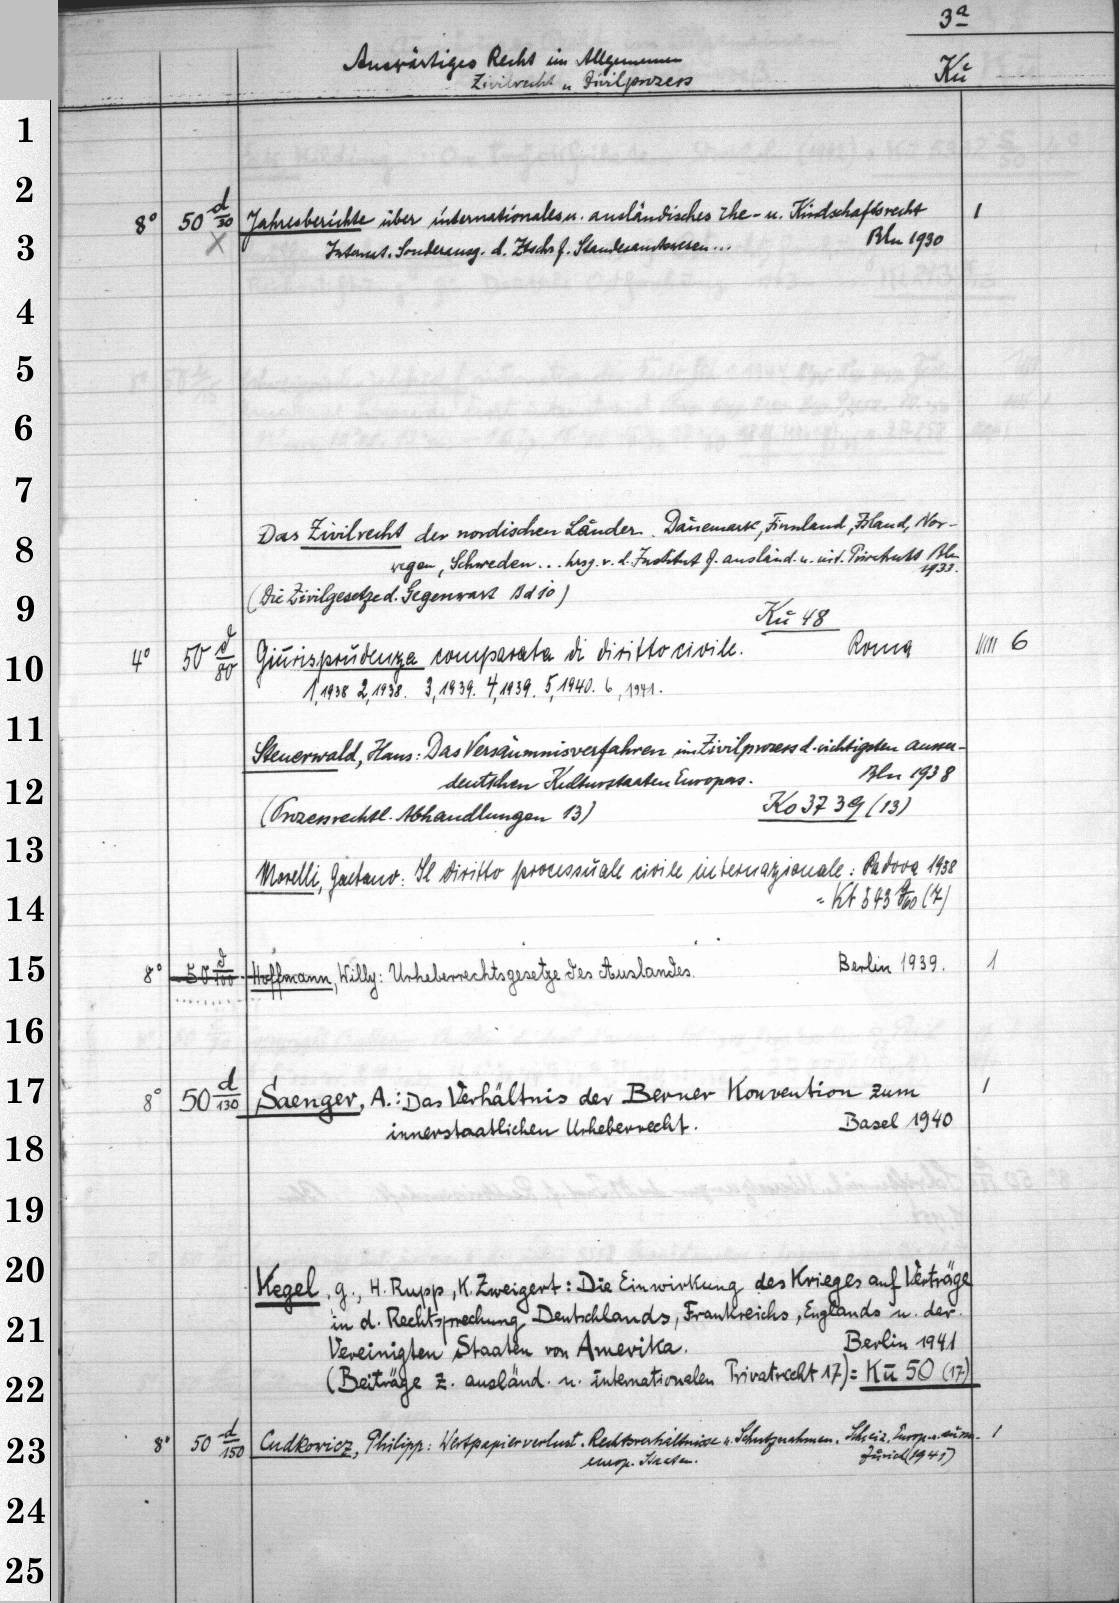 3a
Auswärtiges Recht im Allgemeinen Kü
Zivilrecht u. Zivilprozess
1
2
8° 50 d/30 Jahresberichte über internationales u. ausländisches Ehe- u. Kindschaftsrecht 1
3 X Internt. Sonderausg. d. Ztschr f. Standesamtswesen... Bln 1930
4
5
6
7
Das Zivilrecht der nordischen Länder. Dänemark, Finnland, Island, Nor-
8 wegen, Schweden... hrsg. v. d. Institut f. ausländ. u. int. Privatrecht Bln
1933.
9 (Die Zivilgesetze d. Gegenwart Bd 10)
Kü 48
10 4° 50 d/80 Giurisprudenza comparata di diritto civile. Roma 6
1,1938 2,1938. 3,1939. 4,1939. 5,1940. 6,1941.
11
Steuerwald, Hans: Das Versäumnisverfahren im Zivilprozess d. wichtigsten ausser-
12 deutschen Kulturstaaten Europas. Bln 1938
(Prozessrechtl. Abhandlungen 13) Ko 3739 (13)
13
Morelli, Gaetano: Il diritto processuale civile internazionale: Padova 1938
14 = Kt 543 (7)
15 8° 50 d/100 Hoffmann, Willy: Urheberrechtsgesetze des Auslandes. Berlin 1939. 1
16
17 8° 50 d/130 Saenger, A.: Das Verhältnis der Berner Konvention zum 1
innerstaatlichen Urheberrecht. Basel 1940
18
19
20
Kegel, G., H. Rupp, K. Zweigert: Die Einwirkung des Krieges auf Verträge
21 in d. Rechtsprechung Deutschlands, Frankreichs, Englands u. der
Vereinigten Staaten von Amerika. Berlin 1941
22 (Beiträge z. ausländ. u. internationalen Privatrecht 17) = Kü 50 (17)
23 8° 50 d/150 Cudkowicz, Philipp: Wertpapierverlust. Rechtsverhältnisse u. Schutznahmen. 1
europ. Staaten. Zürich (1941)
24
25